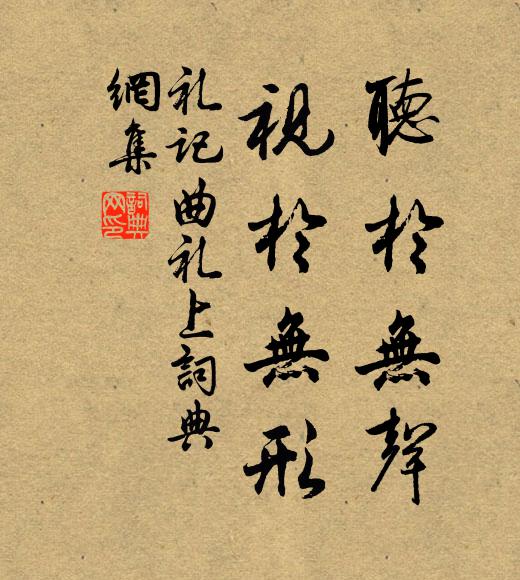 聽於無聲
視於無形
礼记曲礼上詞典
網集
詞典
网印